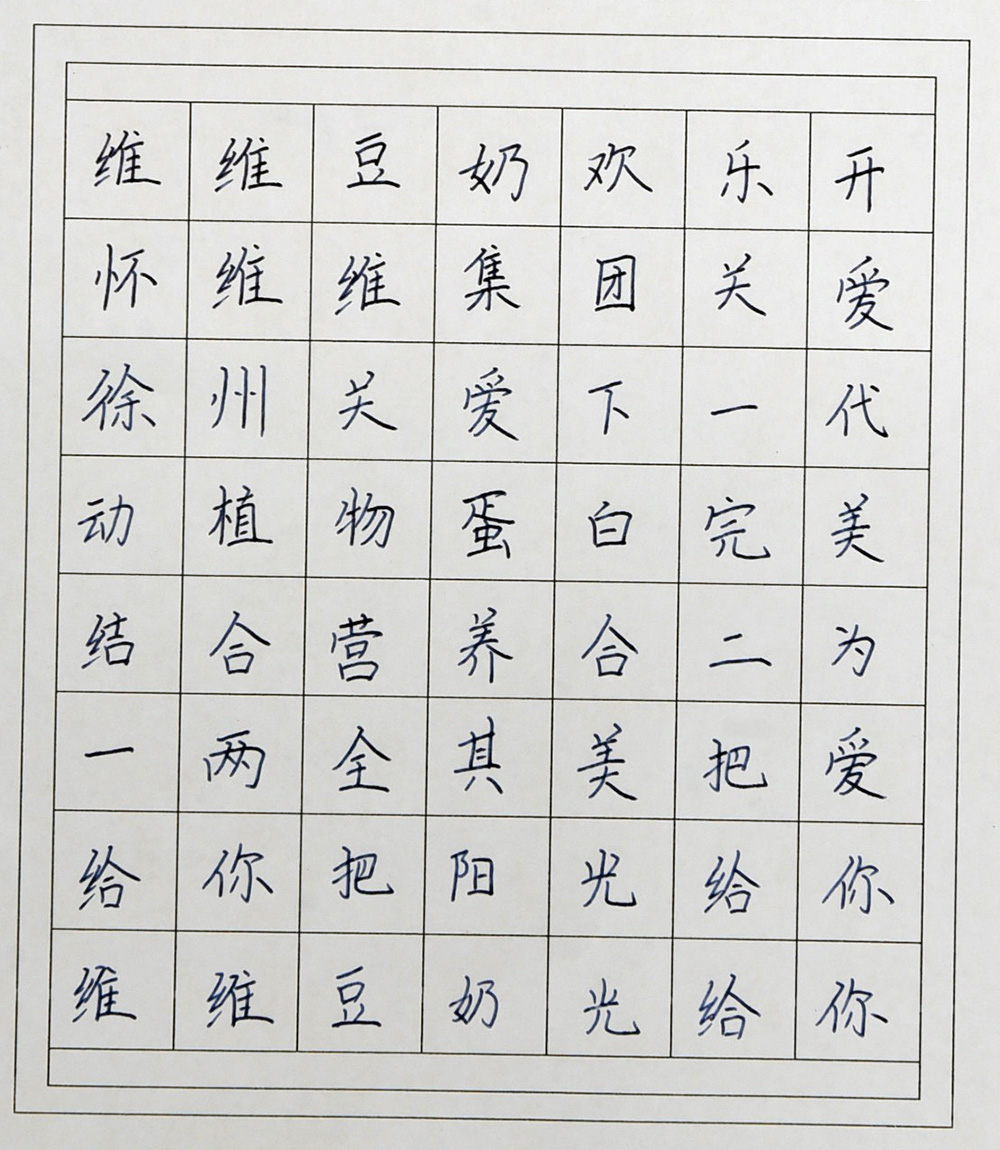 维维豆奶欢乐开
怀维维集团关爱
徐州关爱下一代
动植物蛋白完美
结合营养合二为
一两全其美把爱
给你把阳光给你
维维豆奶光给你